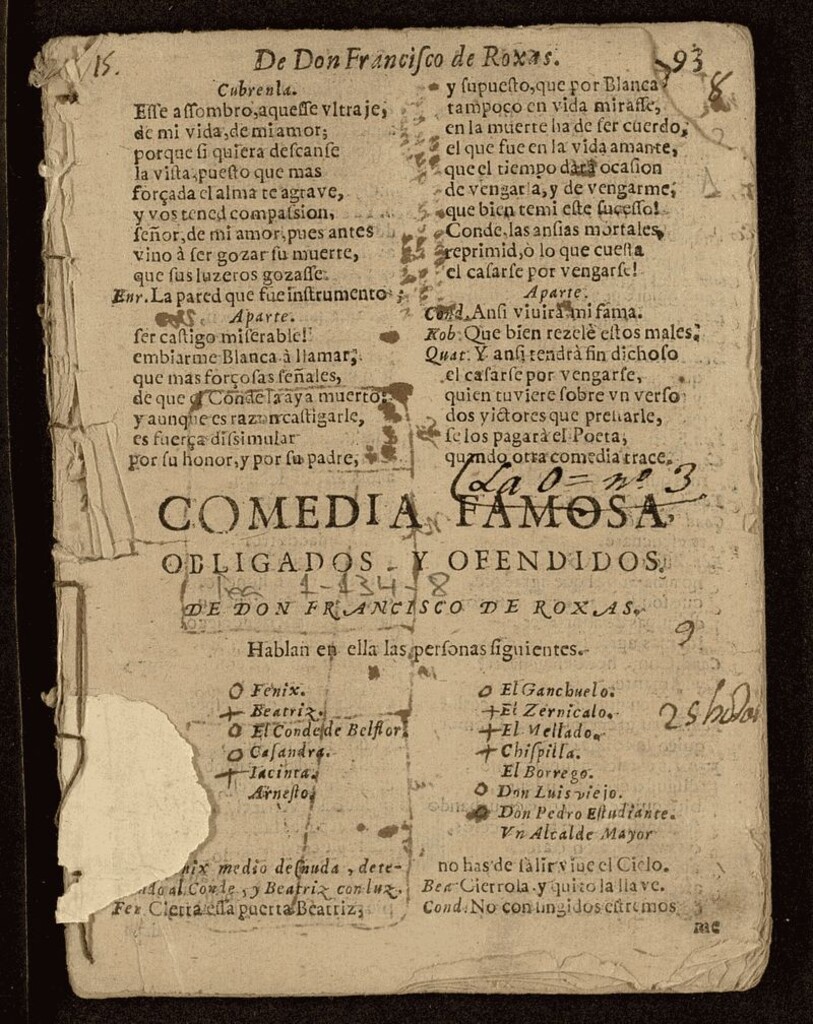 15.
De Don Franciſco de Roxas.
93
8
Cubrenla.
Eſſe aſſombro, aqueſſe vltraje,
de mi vida, de mi amor;
porque ſi quiera deſcanſe
la viſta, pueſto que mas
forçada el alma te agrave,
y vos tened compaſsion,
ſeñor, de mi amor, pues antes
vino à ſer gozar ſu muerte,
que ſus luzeros gozaſſe.
Enr. La pared que fue inſtrumento
Aparte.
ſer caſtigo miſerable!
embiarme Blanca à llamar;
que mas forçoſas ſeñales,
de que el Conde la aya muerto:
y aunque es razon caſtigarle,
es fuerça diſsimular
por ſu honor, y por ſu padre,
y ſupueſto, que por Blanca
tampoco en vida miraſſe,
en la muerte ha de ſer cuerdo,
el que fue en la vida amante,
que el tiempo darà ocaſion
de vengarla, y de vengarme;
que bien temi eſte ſuceſſo!
Conde, las anſias mortales,
reprimid, ò lo que cueſta
el caſarſe por vengarſe!
Aparte.
Cond. Anſi viuirà mi fama.
Rob. Que bien rezelè eſtos males!
Quat. Y anſi tendrà fin dichoſo
el caſarſe por vengarſe,
quien tuviere ſobre vn verſo
dos victores que preſtarle,
ſe los pagarà el Poeta,
quando otra comedia trace.
La O = nº 3
COMEDIA FAMOSA,
OBLIGADOS, Y OFENDIDOS.
1-134-8
DE DON FRANCISCO DE ROXAS.
9
Hablan en ella las perſonas ſiguientes.
Fenix.
Beatriz.
El Conde de Belflor.
Caſandra.
Iacinta.
Arneſto.
El Ganchuelo.
El Zernicalo.
El Mellado.
Chiſpilla.
El Borrego.
Don Luis viejo.
Don Pedro Eſtudiante.
Vn Alcalde Mayor
25
nix medio deſnuda, dete-
al Conde, y Beatriz con luz.
Fen. Cierra eſſa puerta Beatriz;
no has de ſalir viue el Cielo.
Bea. Cierrola, y quito la llave.
Cond. No con fingidos eſtremos
me